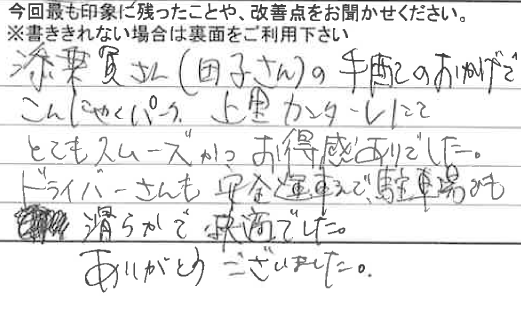 今回最も印象に残ったことや、改善点をお聞かせください。
※書ききれない場合は裏面をご利用下さい
添乗員さん(団子さん)の手配のおかげで
こんにゃくパーク、上里カンターレにて
とてもスムーズかつお得感ありでした。
ドライバーさんも安全運転で、駐車場でも
滑らかで快適でした。
ありがとうございました。